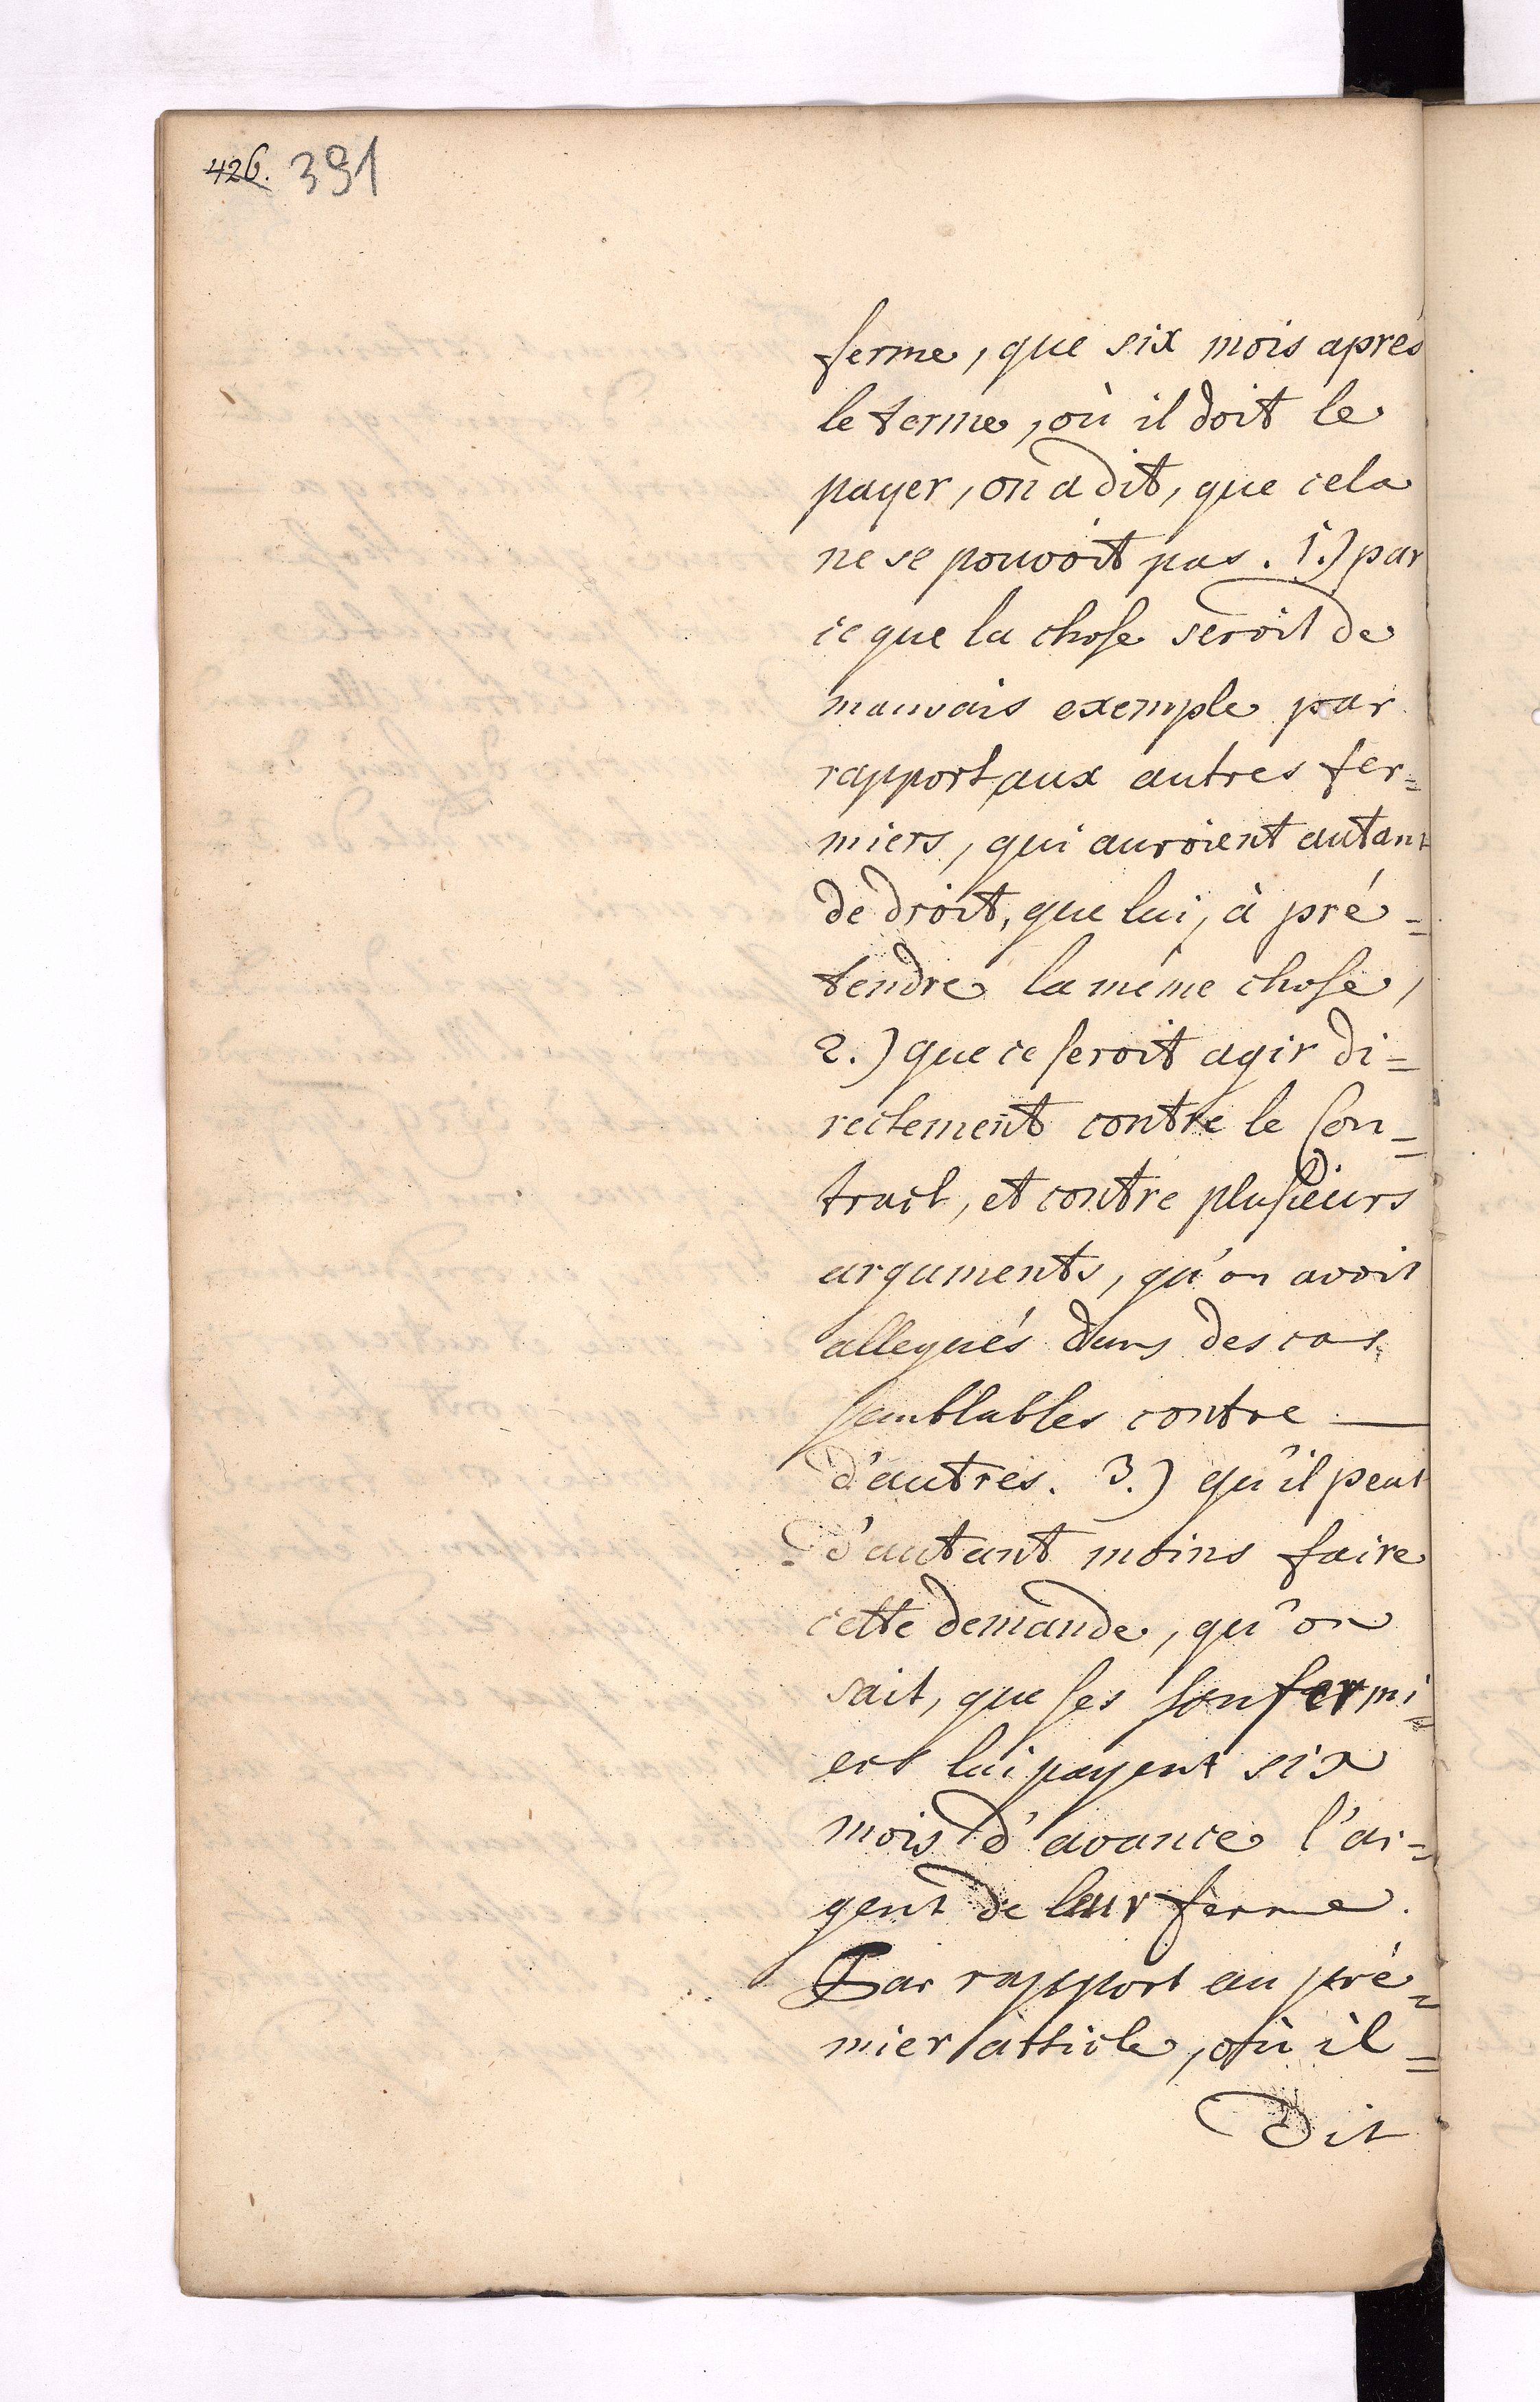 426. 391
ferme, que six mois aprés
le terme, où il doit le
payer, on a dit, que cela
ne se pouvoit pas. 1.) par
ce que la chose seroit de
mauvais exemple par
rapport aux autres fer=
miers, qui auroient autant
de droit, que lui, à pré=
tendre la même chose,
2.) que ce seroit agir di=
rectement contre le Con=
tract, et contre plusieurs
arguments, qu'on avoit
allegués dans des cas
semblables contre —
d'autres. 3.) qu'il peut
d'autant moins faire
cette demande, qu'on
sait, que ses sonfermi=
ers lui payent six
mois d'avance l'ar=
gent de leur ferme.
Par rapport au pré=
mier article, où il=
dit